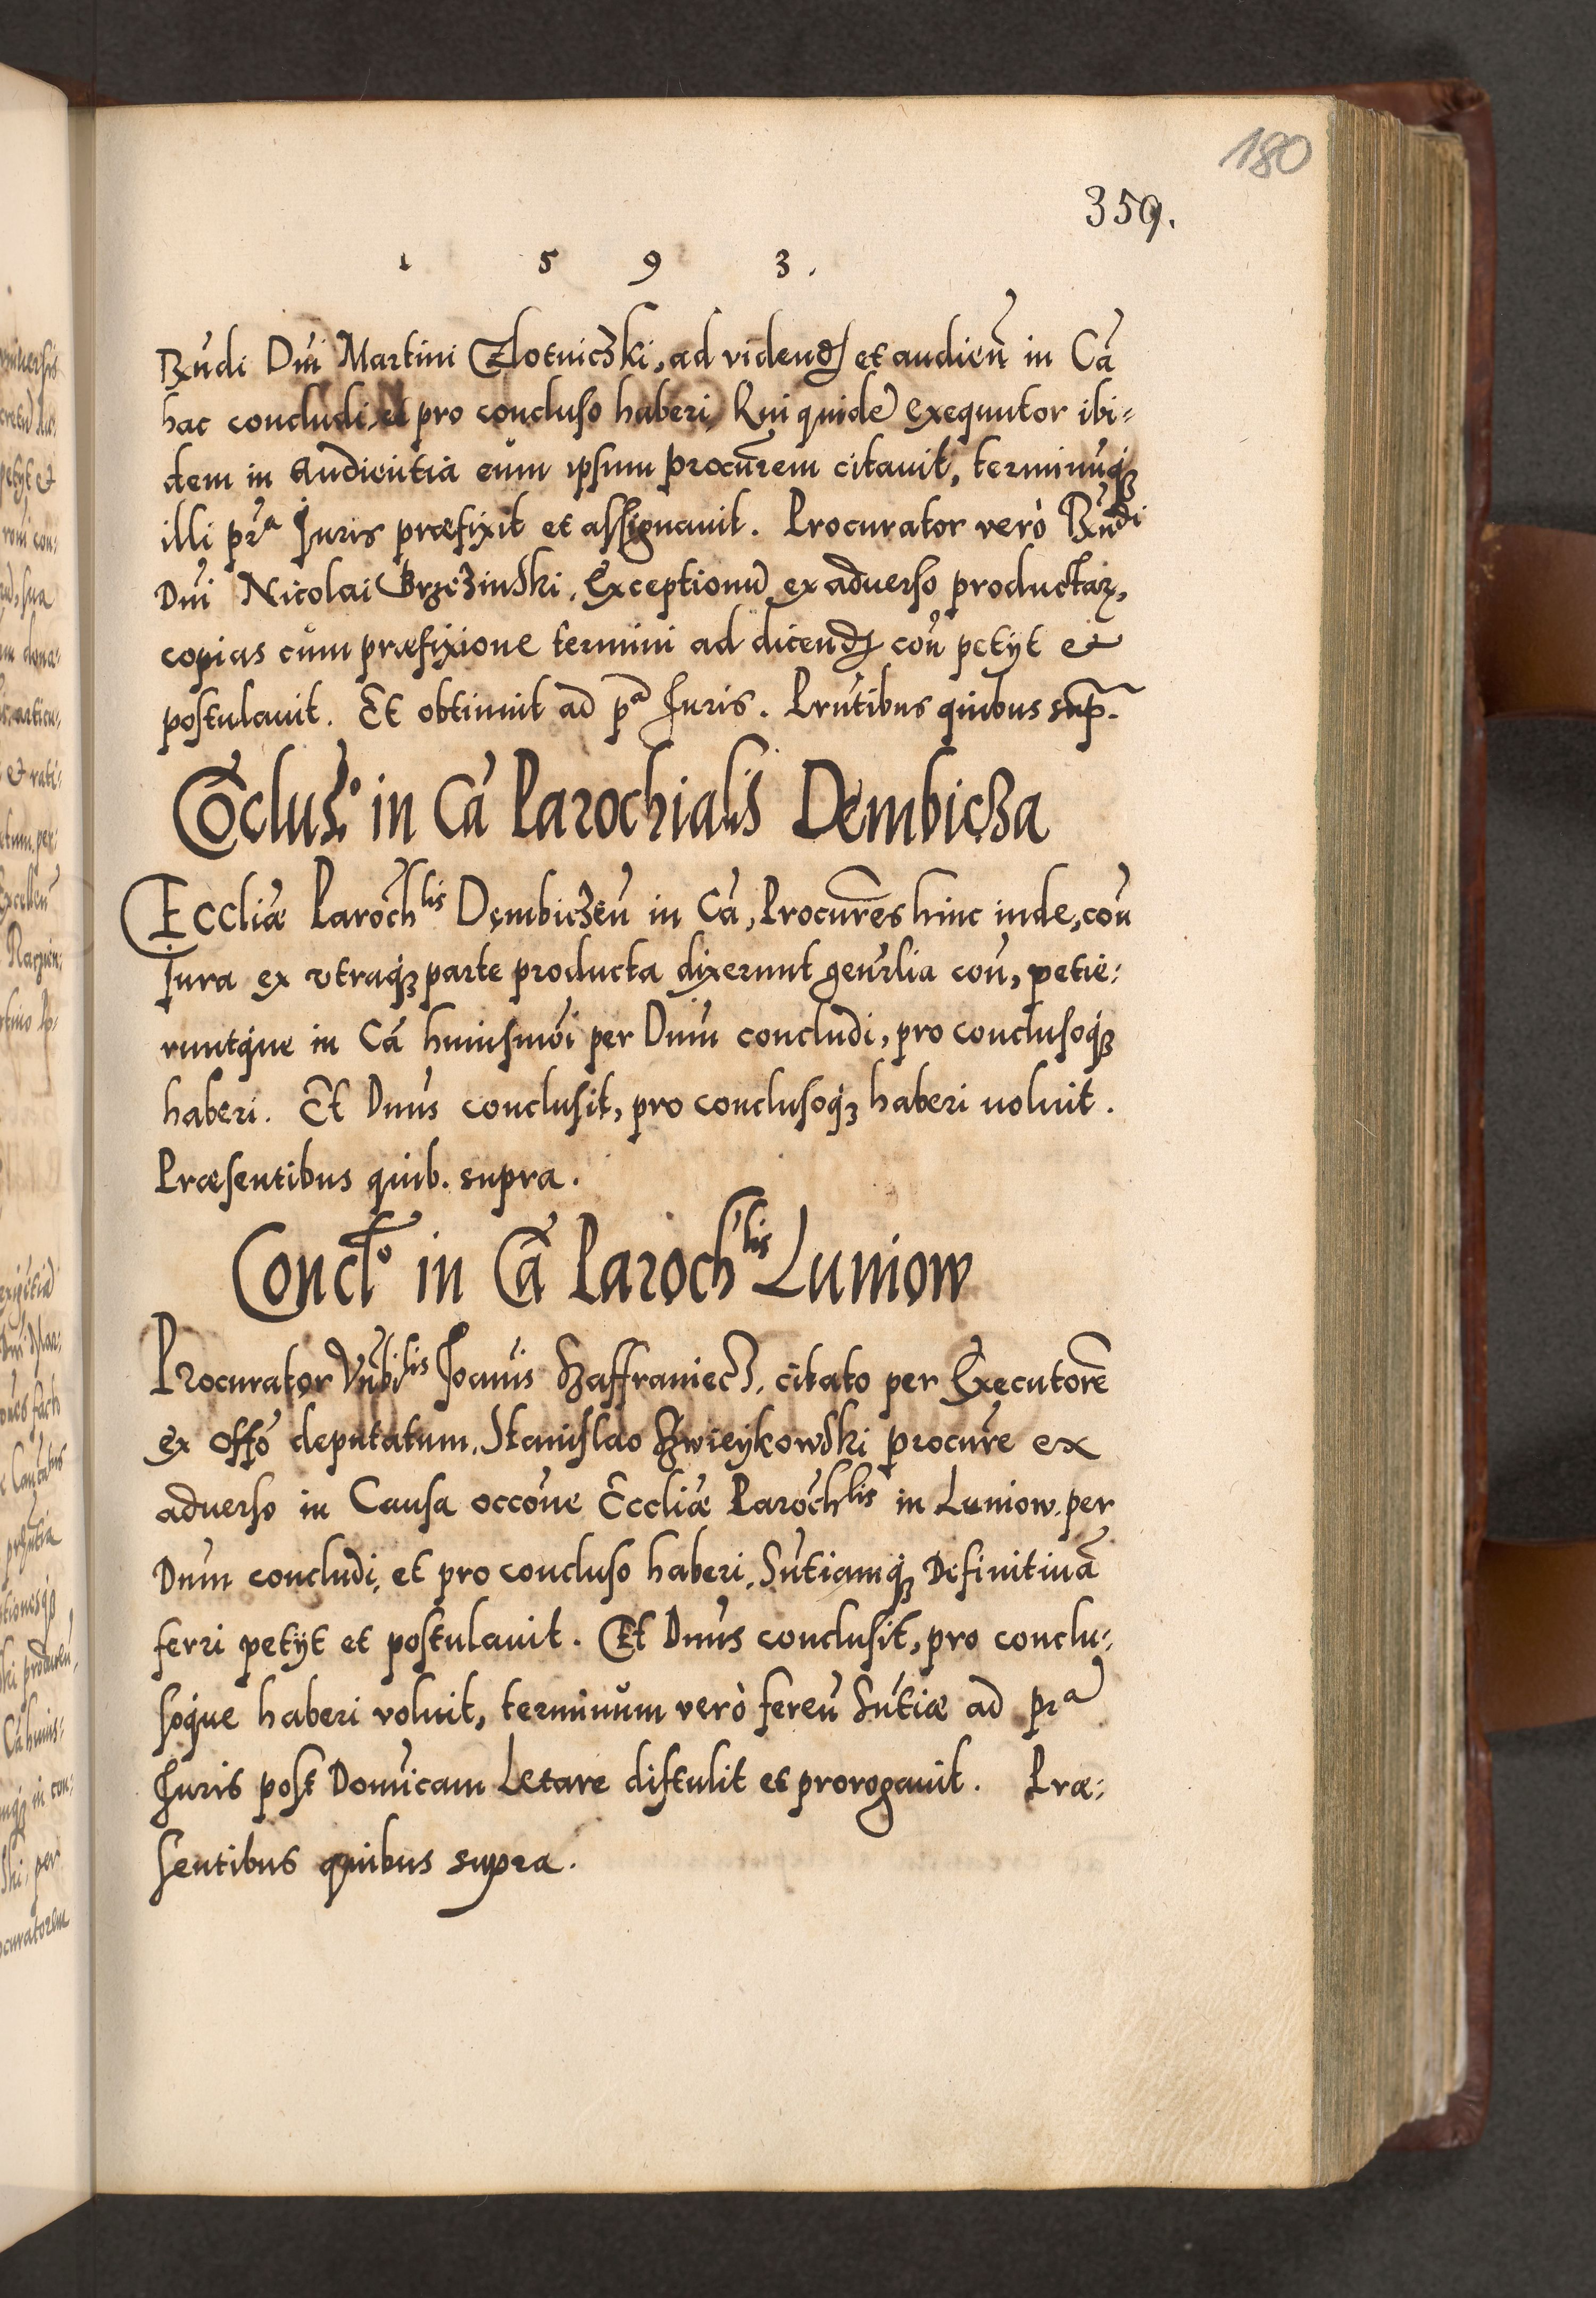 180
359.
1 5 9 3.
Rndi Dni Martini Zlotniczki, ad videnđ et audien̄ in Cā
hac concludi, et pro concluso haberi, Qui quidē exequutor ibi=
dem in Audientia eūm ipsum procūrem citauit, terminūq́ꝫ
illi prᵃ Juris præfixit et assignauit. Procurator verò Rn̄di
Dni Nicolai Brzezinski, Exceptionū ex aduerso productaꝝ,
copias cūm præfixione termini ad dicenđ con̄ petyt et
postulauit. Et obtinuit ad pᵃ Juris. Prn̄tibus quibus supr̄.
Cōclusᵒ in Cā Parochialis Dembicza
Eccliæ Parochˡⁱˢ Dęmbiczen̄ in Cā, Procūres hinc inde, con̄
Jura ex vtraq́ꝫ parte producta dixerunt gen̄rlia con̄, petie=
runtq́ue in Cā huiusmōi per Dnū concludi, pro conclusoq́ꝫ
haberi. Et Dnūs conclusit, pro conclusoq́ꝫ haberi uoluit.
Præsentibus quib. supra.
Conclᵒ in Cā Parochˡⁱˢ Luniow
Procurator Vn̄biˡⁱˢ Joannis Szaffraniecz, citato per Executorē
ex offō deputatum, Stanislao Szwieykowski procūre ex
aduerso in Causa occōne Eccliæ Parochˡⁱˢ in Luniow. per
Dnūm concludi, et pro concluso haberi, Sn̄tiamq́ꝫ Definitiuā
ferri petyt et postulauit. Et Dnūs conclusit, pro conclu=
soq́ue haberi voluit, terminūm verò feren̄ Sn̄tiæ ad prᵃ
Juris post Domīcam Letare distulit et prorogauit. Præ=
sentibus quibus supra.